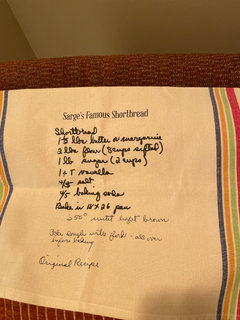 Sarge's Famous Shortbread
Shortbread
1½ lbs butter or margarine
2 lbs flour (8 cups sifted)
1 lb sugar (2 cups)
1 + T vanilla
salt
baking soda
Bake in 18 X 26 pan
250° until light brown
dough with fork - all over
before baking
Original Recipe